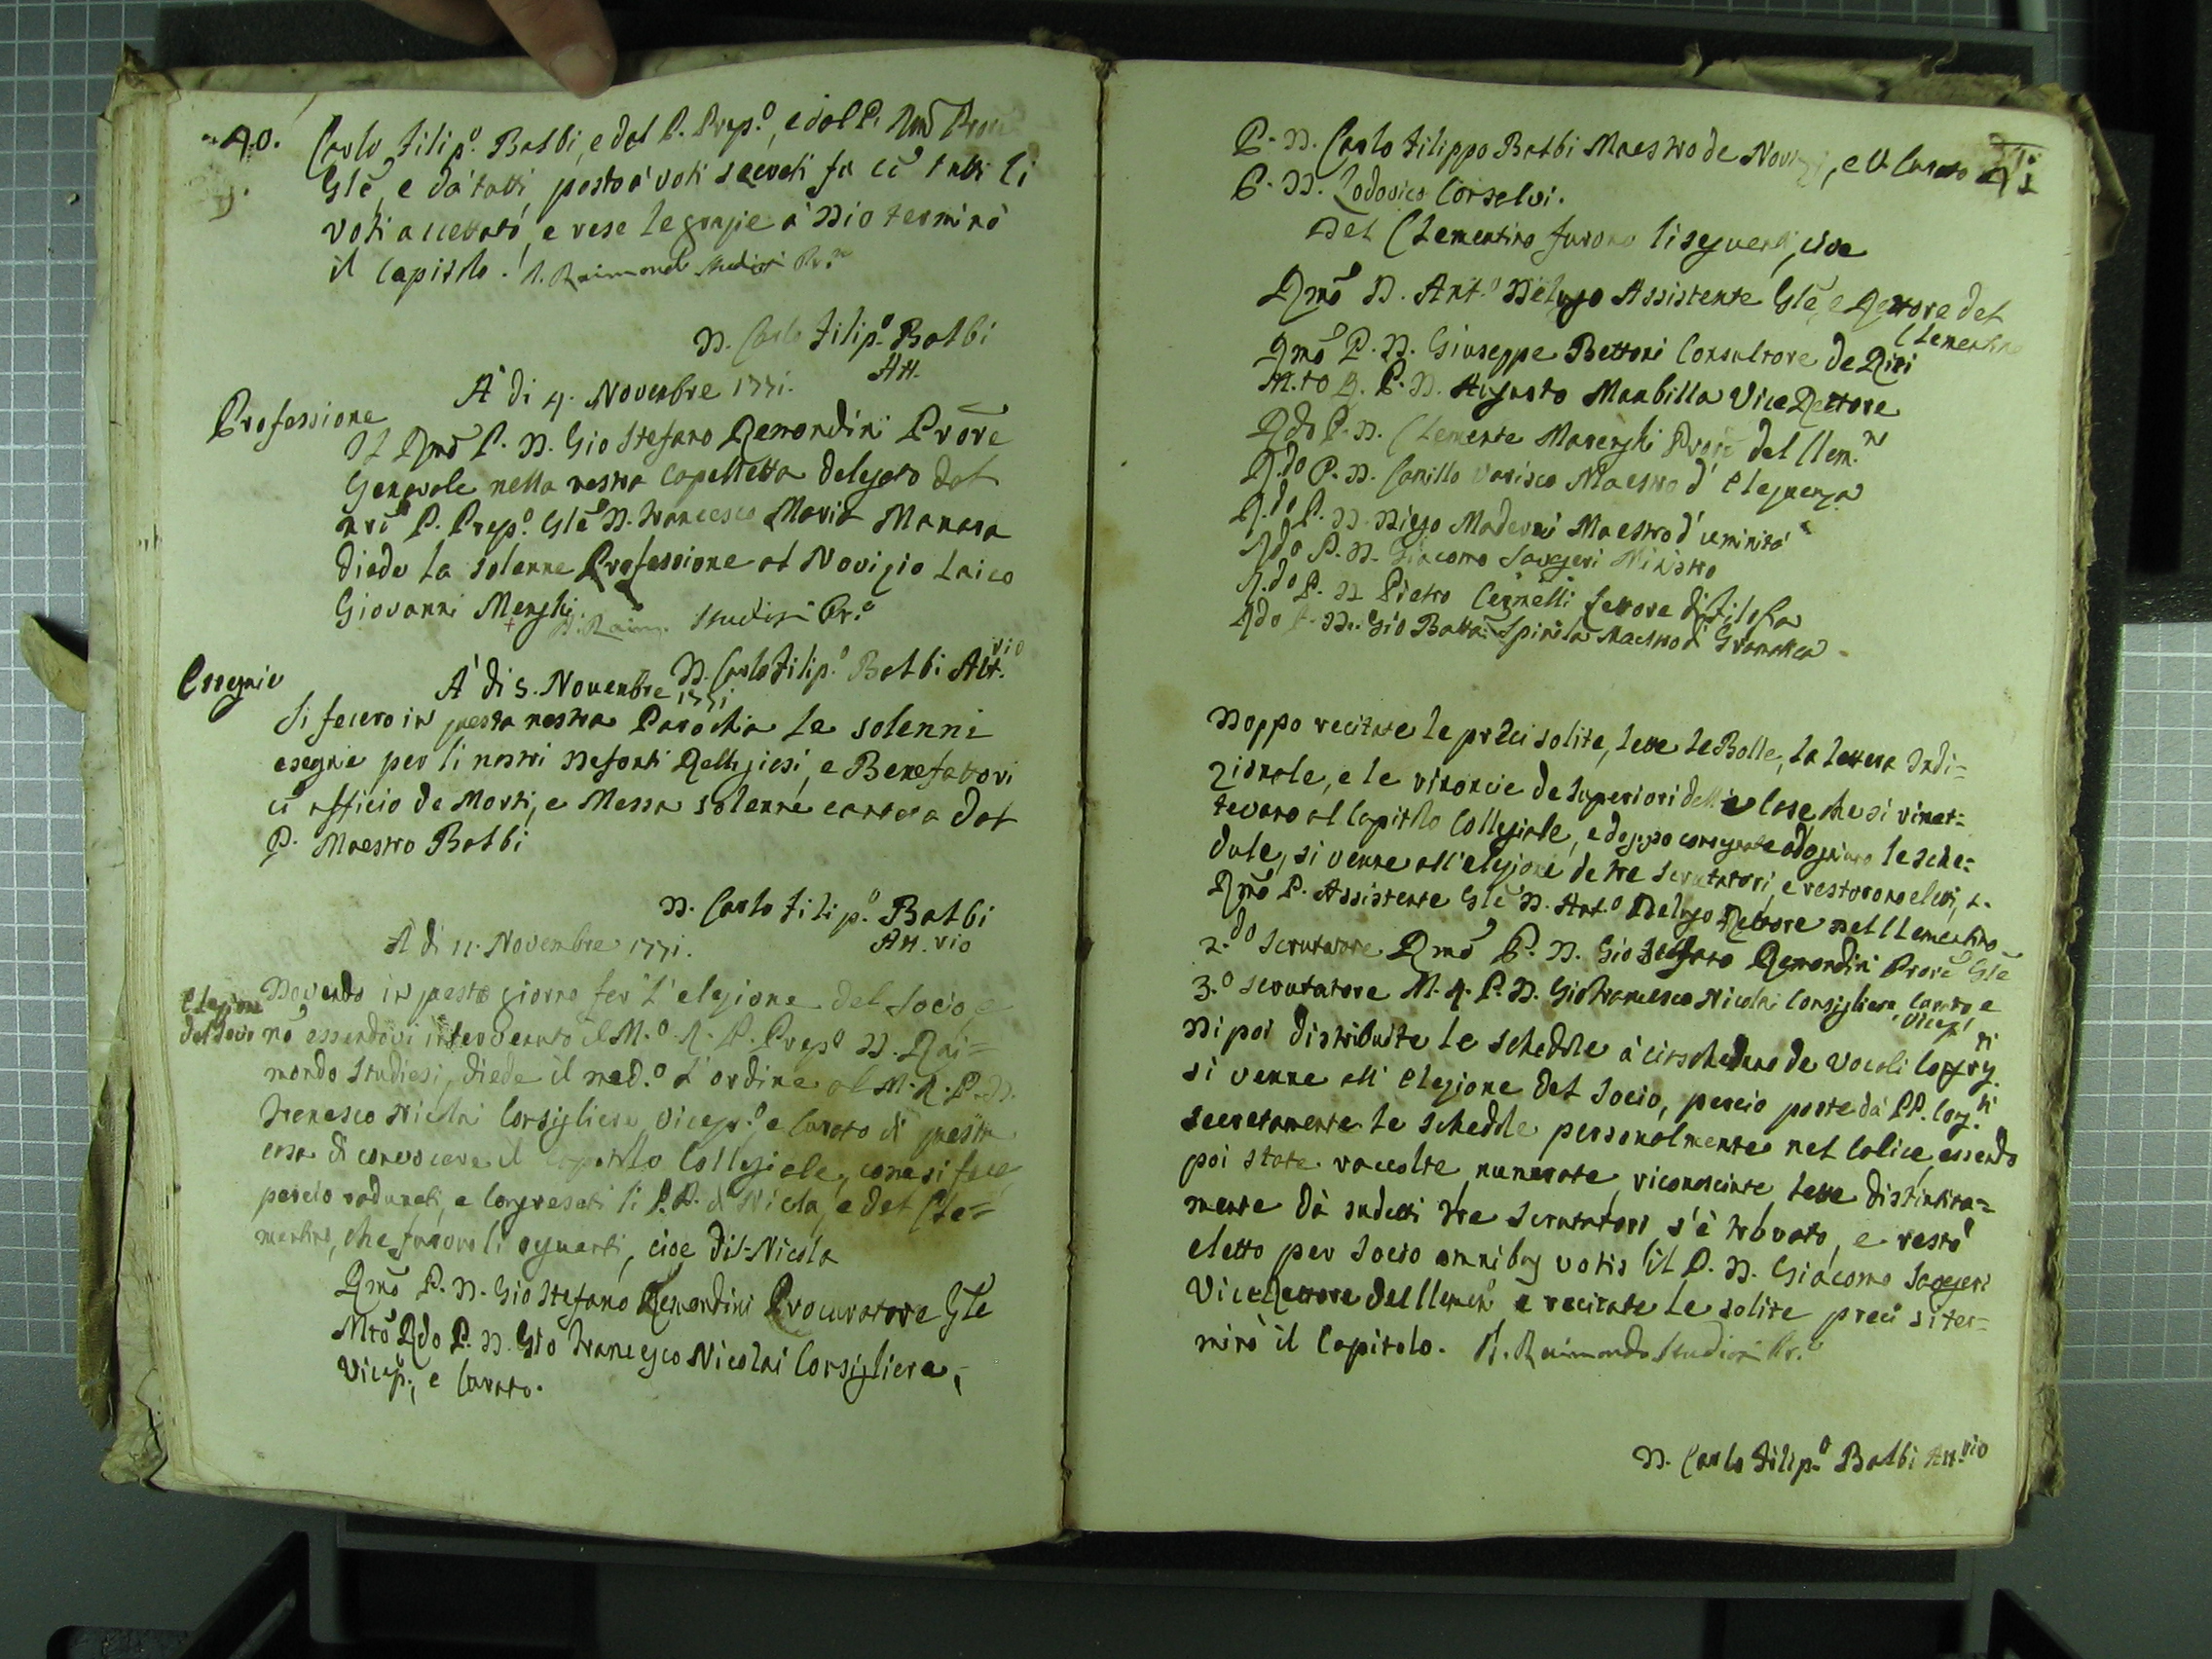 40. Carlo Filip.º Balbi, e dal P. Prep.º, e dal P. Rmõ Prore
Glẽ, e dà tutti, posto à voti secreti fu cũ tutti li
voti accettato, e rese le grazie à Dio terminò
il Capitolo. D. Raimondo Studiosi Pr.º
D. Carlo Filip.º Balbi
Att.
A' di 4. Novembre 1771.
Professione
Il Rmõ P. D. Gio Stefano Remondini Prõre
Generale nella nostra Capelletta delegato dal
nrõ P. Prep.º Glẽ D. Francesco Maria Manara
diede la solenne Professione al Novizio laico
Giovanni Menghi. D. Raim. Studiosi Pr.º
D. Carlo Filip.º Balbi Att.rio
Essequie
A' di 5. Novembre 1771
Si fecero in questa nostra Parochia le solenni
esequie per li nostri Defonti Relligiosi, e Benefattori
cũ officio de Morti, e Messa solenne cantata dal
P. Maestro Balbi
D. Carlo Filip.º Balbi
Att.rio
A di 11. Novembre 1771.
Elezione
del Socio
Dovendo in questo giorno far l'elezione del Socio, e
nõ essendovi intervenuto il M.º R. P. Prep.º D. Rai=
mondo Studiosi, diede il med.º l'ordine al M. R. P. D.
Francesco Nicolai Consigliere, Vicepr.º e Curato di questa
casa di convocare il Capitolo Collegiale, come si fece
perciò radunati, e Congregati li P.P. di S. Nicola, e del Cle=
mentino, che furono li seguenti, cioe di S. Nicola
Rmõ P. D. Gio Stefano Remondini Procuratore Glẽ
Mtõ Rdo P. D. Gio Francesco Nicolai Consigliere,
Vicep., e Curato.
41
P. D. Carlo Filippo Balbi Maestro de Novizi, e V. Curato
P. D. Lodovico Corselvi.
Del Clementino furono li seguenti, cioe
Rmõ D. Ant.º Delugo Assistente Glẽ, e Rettore del
Clementino
Rmõ P. D. Giuseppe Bettoni Consultore de Riti
M.to R. P. D. Augusto Manbilla Vice Rettore
Rdo P. D. Clemente Marenghi Prore del Clem.no
R.do P. D. Camillo Varisco Maestro d'Eloquenza
R.do P. D. Diego Maderni Maestro d'uminità
Rdo P. D. Giacomo Savageri Ministro
R.do P. D. Pietro Cermelli Lettore di Filosfia
Rdo P. D. Gio Batta Spinola Maestro di Gramatica
Doppo recitate le preci solite, lette le Bolle, la lettera Indi=
zionale, e le rinoncie de Superiori delle cose che si rimet=
tevano al Capitolo Collegiale, e doppo consegnate ad ogniuno le sche=
dule, si venne all'elezione de tre Scrutatori, e restorono eletti, 1.
Rmõ P. Assistente Glẽ D. Ant.º Delugo Rettore nel Clementino
2.do Scrutatore Rmõ P. D. Gio Stefano Remondini Prorẽ Glẽ
3.º Scrutatore M. R. P. D. Gio Francesco Nicolai Consigliere, Curato, e
Vicepr.
Di poi distribuite le schedole à ciascheduno de Vocali Cogreg.ti
si venne all'elezione del Socio, perciò poste da PP. Cog.ti
secretamente le schedole personalmente nel Calice, essendo
poi state raccolte, numerate, riconosciute, lette distintita=
mente dà sudetti tre Scrutatori s'è trovato, e restò
eletto per Socio omnibus votis il P. D. Giacomo Savageri
Vice Rettore del Clemen.º e recitate le solite preci si ter=
minò il Capitolo. D. Raimondo Studiosi Pr.º
D. Carlo Filip.º Balbi Att.rio